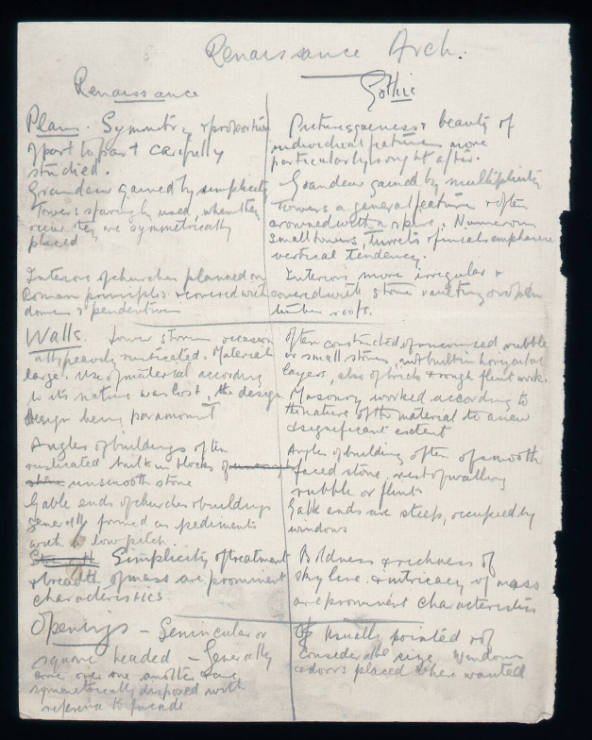 Renaissance Arch.
Renaissance
Plan. Symmetry & proportion
of part to part carefully
studied.
Grandeur gained by simplicity
Towers sparingly used, when they
occur they are symmetrically
placed
Interiors of churches planned on
Roman principles & covered with
domes & pendentives
Walls. Lower stories occasion
ally heavily rusticated. Materials
large. Use of material according
to its nature was lost, the design
design being paramount
Angles of buildings often
rusticated built in blocks of
unsmooth stone
Gable ends of churches & buildings
generally formed as pediments
with a low pitch.
Simplicity of treatment
& breadth of mass are prominent
characteristics
Openings - Semicircular or
square headed - Generally
one over one another & are
symmetrically disposed with
reference to facade
Gothic
Picturesqueness & beauty of
individual features more
particularly sought after.
Grandeur gained by multiplicity
Towers a general feature & often
crowned with a spire, Numerous
small towers, turrets & finials emphasise
vertical tendency.
Interiors more irregular &
covered with stone vaulting or open
timber roofs.
Often constructed of uncoursed rubble
or small stones, not built in horizontal
layers, also of brick & rough flint work.
Masonry worked according to
the nature of the material to a new
& significant extent
Angles of building often of smooth
faced stone, rest of walling
rubble or flint
Gable ends are steep, occupied by
windows
Boldness & richness of
sky line & intricacy of mass
are prominent characteristics
Usually pointed & of
considerable size. Windows
& doors placed where wanted